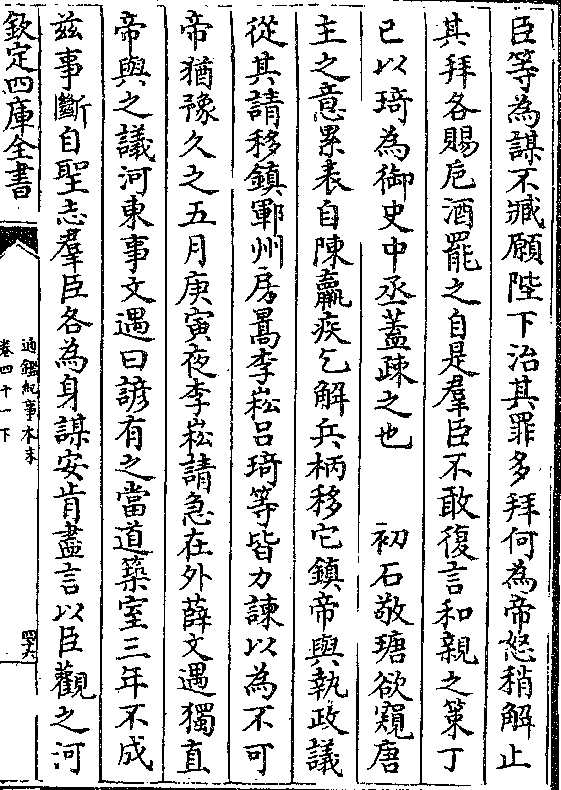 臣等為謀不臧願陛下治其罪多拜何為帝怒稍解止
其拜各賜巵酒罷之自是羣臣不敢復言和親之策丁
已以琦為御史中丞蓋疎之也　初石敬瑭欲窺唐
主之意累表自陳羸疾乞解兵柄移它鎮帝與執政議
從其請移鎮鄆州房暠李崧呂琦等皆力諫以為不可
帝猶豫久之五月庚寅夜李崧請急在外薛文遇獨直
帝與之議河東事文遇曰諺有之當道築室三年不成
兹事斷自聖志羣臣各為身謀安肯盡言以臣觀之河
欽定四庫全書
通鑑紀事本末
卷四十一下
四六